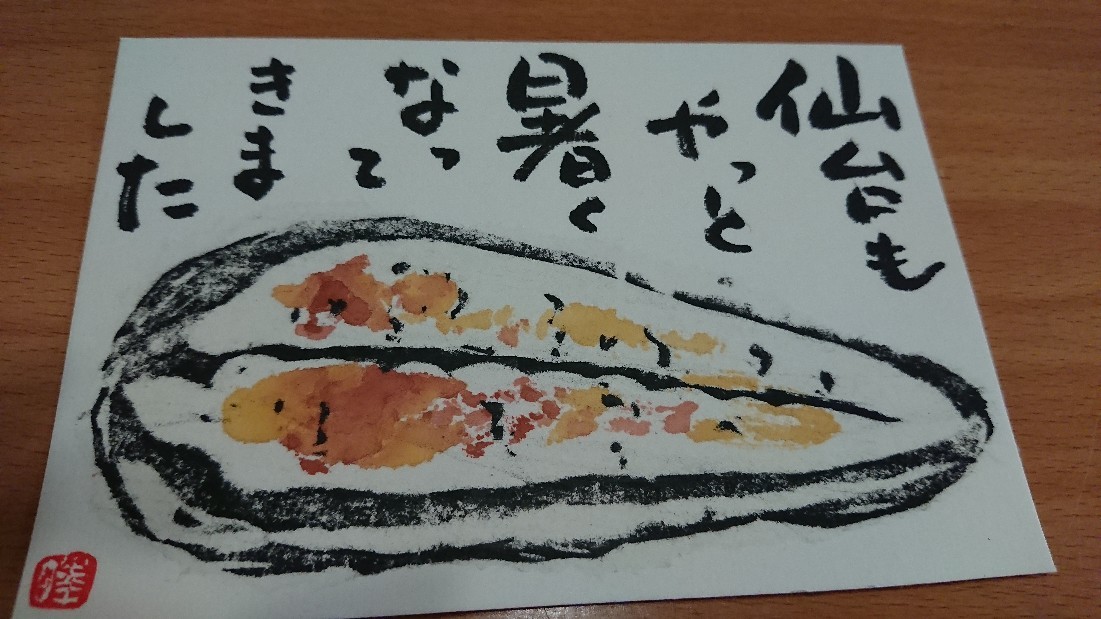 仙台も
やっと
暑く
なっ
て
きま
した
陸